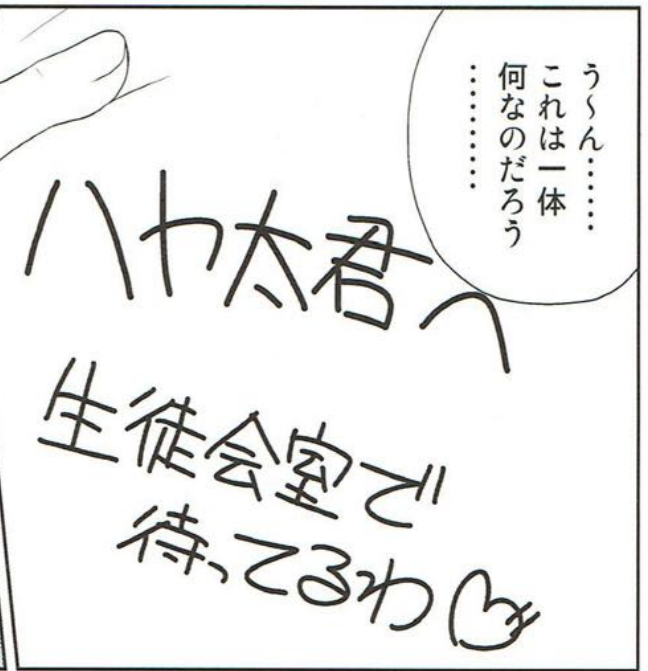 う～ん……
これは一体
何なのだろう
………
ハヤ太君へ
生徒会室で
待ってるわ♡